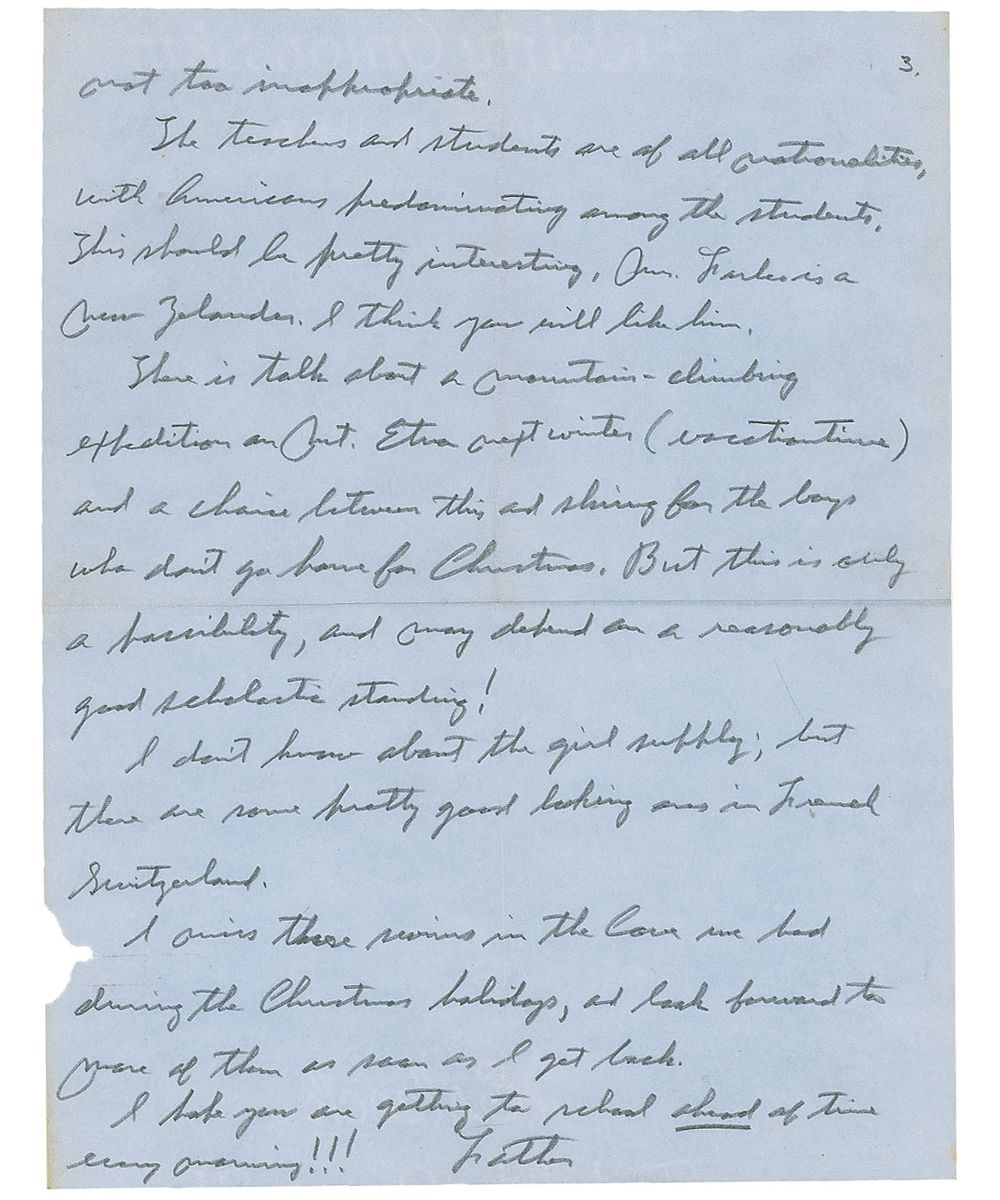 3.
not too inappropriate.
The teachers and students are of all nationalities,
with Americans predominating among the students.
This should be pretty interesting. Mr. is a
New Zelander. I think you will like him.
There is talk about a mountain-climbing
expedition on Mt. Etna next winter (vacationtime)
and a choice between this and skiing for the boys
who don't go home for Christmas. But this is only
a possibility, and may depend on a reasonably
good scholastic standing!
I don't know about the girl supply; but
there are some pretty good looking ones in French
Switzerland.
I miss those swims in the Cove we had
during the Christmas holidays, and look forward to
more of them as soon as I get back.
I hope you are getting to school ahead of time
every morning!!! Father